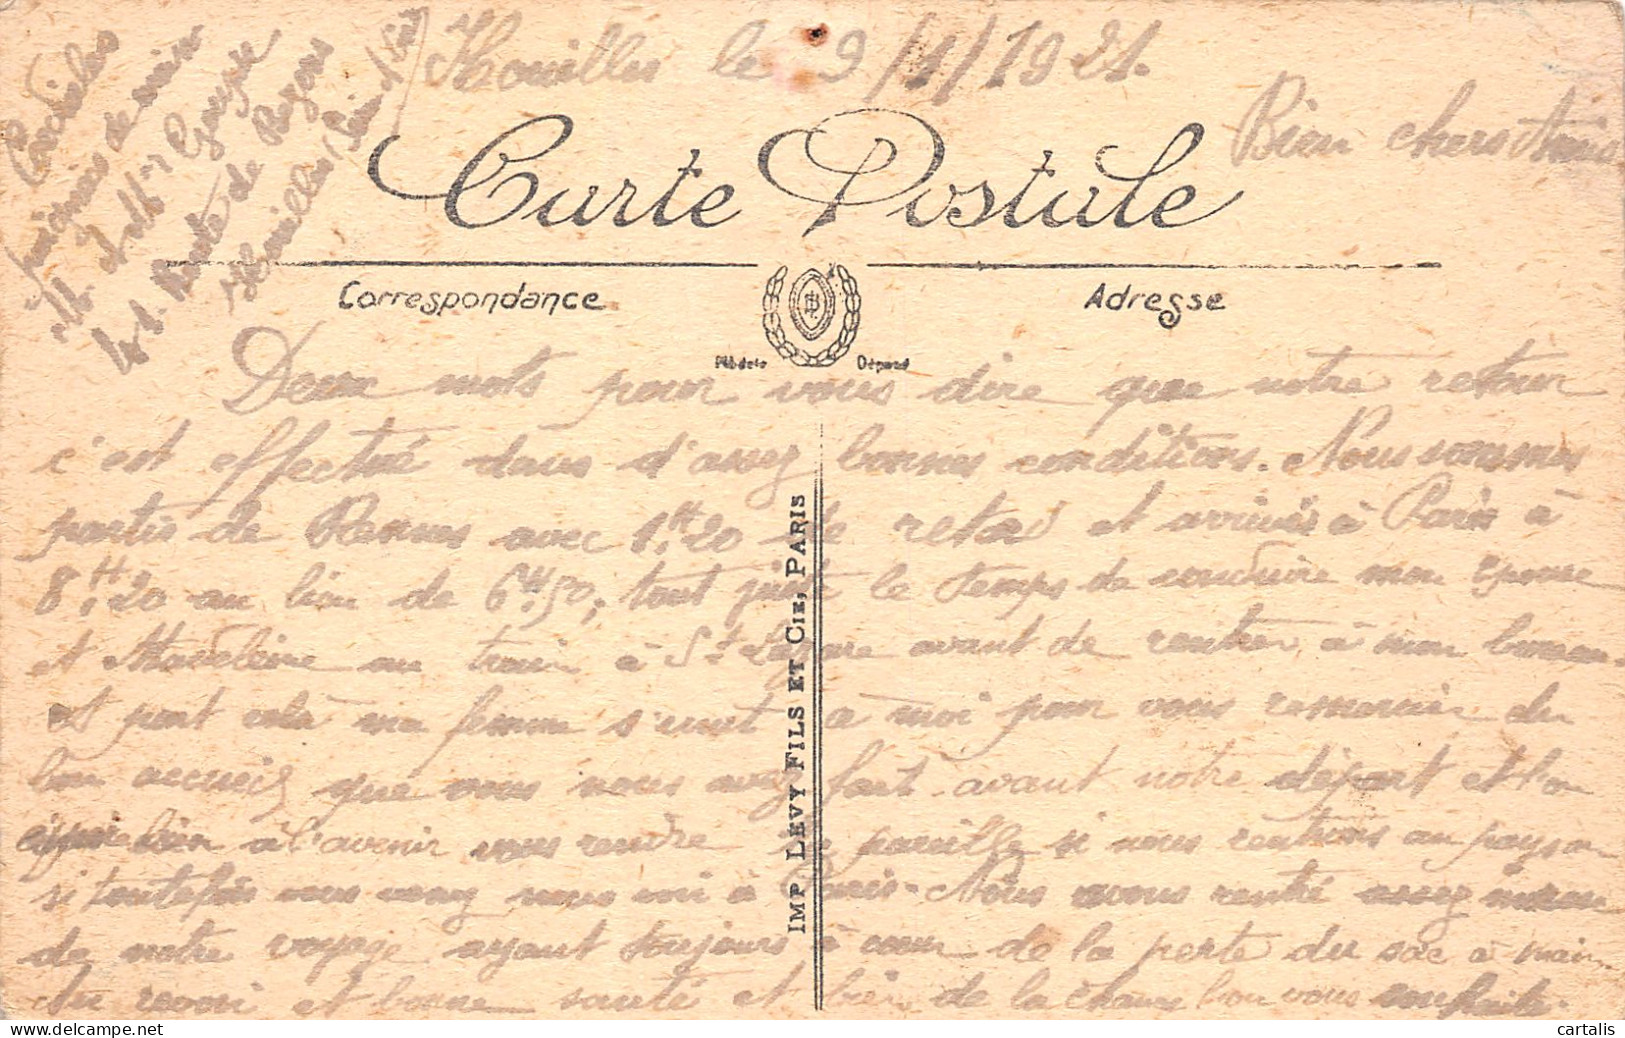 Houilles le 9/1/1921.
Bien chers Amis
Carte Postale
Correspondance
Adresse
Modèle Déposé
Deux mots pour vous dire que notre retour
c'est effectué dans d'assez bonnes conditions. Nous sommes
partis de Rennes avec 1.H20 de retad et arrivés à Paris à
8.H20 au lieu de 6.H50, tout juste le temps de conduire mon épouse
et Madeleine au train à St Lazare avant de rentrer à mon bureau.
et pour cela ma femme s'unit à moi pour vous remercier du
bon accueil que vous nous avez fait avant notre départ et l'on
espère bien à l'avenir vous rendre la pareille si nous rentrions au pays ou
si toutefois vous venez nous voir à Paris. Nous avons rentré assez
de notre voyage ayant toujours à cœur de la perte du sac à main.
Au revoir et bonne santé et bien de la chance l'on vous souhaite.
Cordiales
poignées de main
M. et Mme
Route de
Houilles (Seine et Oise)
IMP LEVY FILS ET CIE, PARIS
cartalis